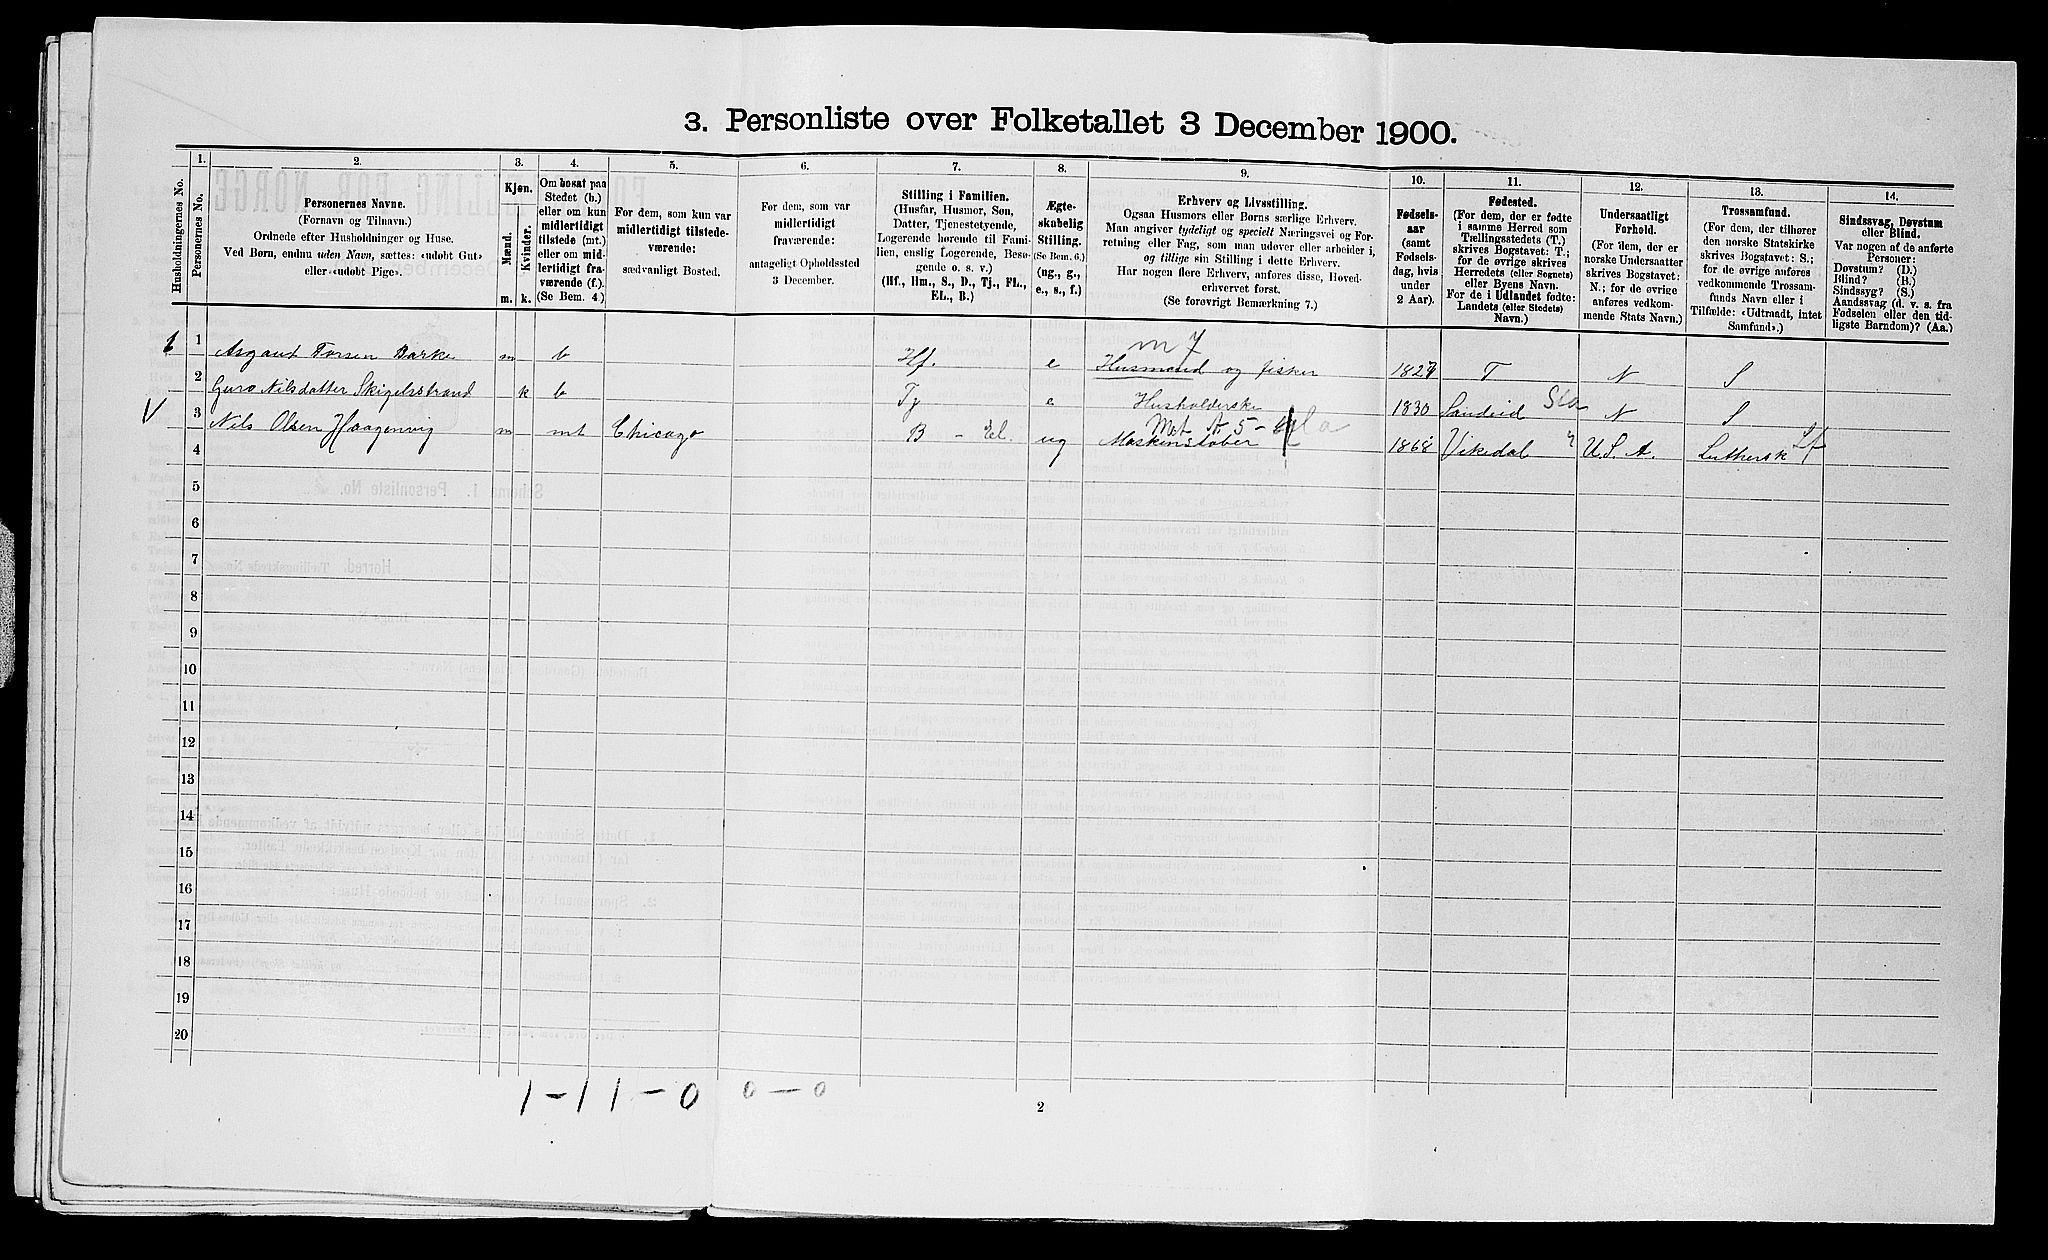 3. Personliste over Folketallet 3 December 1900.
Husholdningernes No.
1.
Personernes No.
2.
Personernes Navne.
(Fornavn og Tilnavn.)
Ordnede efter Husholdninger og Huse.
Ved Børn, endnu uden Navn, sættes: «udøbt Gut»
eller «udøbt Pige».
3.
Kjøn.
Mænd.
Kvinder.
m. k.
4.
Om bosat paa
Stedet (b.)
eller om kun
midlertidigt
tilstede (mt.)
eller om mid-
lertidigt fra-
værende (f.).
(Se Bem. 4.)
5.
For dem, som kun var
midlertidigt tilstede-
værende:
sædvanligt Bosted.
6.
For dem, som var
midlertidigt
fraværende:
antageligt Opholdssted
3 December.
7.
Stilling i Familien.
(Husfar, Husmor, Søn,
Datter, Tjenestetyende,
Logerende hørende til Fami-
lien, enslig Logerende, Besø-
gende o. s. v.)
(Hf., Hm., S., D., Tj., FL.,
EL., B.)
8.
Ægte-
skabelig
Stilling.
(Se Bem. 6.)
(ug., g.,
e., s., f.)
9.
Erhverv og Livsstilling.
Ogsaa Husmors eller Børns særlige Erhverv.
Man angiver tydeligt og specielt Næringsvei og For-
retning eller Fag, som man udøver eller arbeider i,
og tillige sin Stilling i dette Erhverv.
Har nogen flere Erhverv, anføres disse, Hoved-
erhvervet først.
(Se forøvrigt Bemærkning 7.)
10.
Fødsels-
aar
(samt
Fødsels-
dag, hvis
under
2 Aar).
11.
Fødested.
(For dem, der er fødte
i samme Herred som
Tællingsstedets (T.)
skrives Bogstavet: T.;
for de øvrige skrives
Herredets (eller Sognets)
eller Byens Navn.
For de i Udlandet fødte:
Landets (eller Stedets)
Navn.)
12.
Undersaatligt
Forhold.
(For dem, der er
norske Undersaatter
skrives Bogstavet:
N.; for de øvrige
anføres vedkom-
mende Stats Navn.)
13.
Trossamfund.
(For dem, der tilhører
den norske Statskirke
skrives Bogstavet: S.;
for de øvrige anføres
vedkommende Trossam-
funds Navn eller i
Tilfælde: «Udtraadt, intet
Samfund».)
14.
Sindssvag, Døvstum
eller Blind.
Var nogen af de anførte
Personer:
Døvstum? (D.)
Blind? (B.)
Sindssyg? (S.)
Aandssvag (d. v. s. fra
Fødselen eller den tid-
ligste Barndom)? (Aa.)
m 7
1 1 Asgaut Torsen Barke m b Hf. e Husmand og fisker 1827 T N S
2 Guro Nilsdatter Skigelsstrand k b Tj e Husholderske 1830 Sandeid N S
V 3 Nils Olsen Haagenvig m mt Chicago B - El. ug Maskinstøber 1868 Vikedal U. S. A. Luthersk Lf
4
5
6
7
8
9
10
11
12
13
14
15
16
17
18
19
20
1 - 1 1 - 0 0 - 0
2